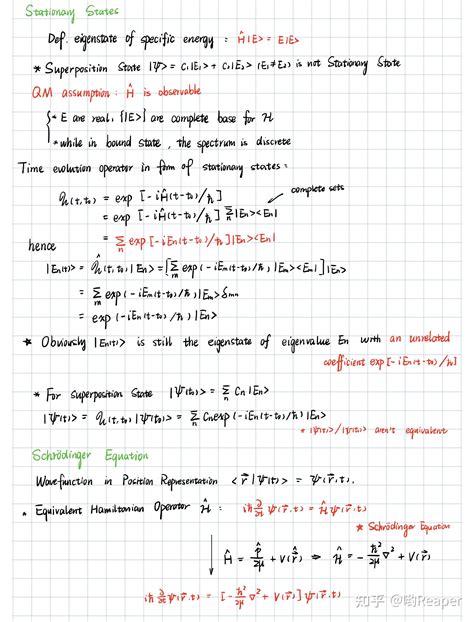 Stationary States
Def. eigenstate of specific energy : Ĥ|E> = E|E>
* Superposition State |ψ> = C₁|E₁> + C₂|E₂> (E₁≠E₂) is not Stationary State
QM assumption : Ĥ is observable
* E are real, {|E>} are complete base for H
* while in bound state, the spectrum is discrete
Time evolution operator in form of stationary states :
𝒰(t,t₀) = exp[-iĤ(t-t₀)/ħ]
complete sets
= exp[-iĤ(t-t₀)/ħ] Σₙ|Eₙ><Eₙ|
= Σₙ exp[-iEₙ(t-t₀)/ħ]|Eₙ><Eₙ|
hence
|Eₙ(t)> = 𝒰̂(t,t₀)|Eₙ> = [Σₘ exp(-iEₘ(t-t₀)/ħ)|Eₘ><Eₘ|]|Eₙ>
= Σₘ exp(-iEₘ(t-t₀)/ħ)|Eₘ>δₘₙ
= exp(-iEₙ(t-t₀)/ħ)|Eₙ>
* Obviously |Eₙ(t)> is still the eigenstate of eigenvalue Eₙ with an unrelated
coefficient exp[-iEₙ(t-t₀)/ħ]
* For superposition State |ψ(t₀)> = Σₙ Cₙ|Eₙ>
|ψ(t)> = 𝒰(t,t₀)|ψ(t₀)> = Σₙ Cₙexp(-iEₙ(t-t₀)/ħ)|Eₙ>
* |ψ(t)>/|ψ(t₀)> aren't equivalent
Schrödinger Equation
Wavefunction in Position Representation <r⃗|ψ(t)> = ψ(r⃗,t).
* Equivalent Hamiltonian Operator Ĥ : iħ ∂/∂t ψ(r⃗,t) = Ĥψ(r⃗,t)
* Schrödinger Equation
Ĥ = p̂/2μ + V(r⃗̂) ⇒ Ĥ = -ħ²/2μ ∇² + V(r⃗)
iħ ∂/∂t ψ(r⃗,t) = [-ħ²/2μ ∇² + V(r⃗)]ψ(r⃗,t)
知乎 @哟Reaper